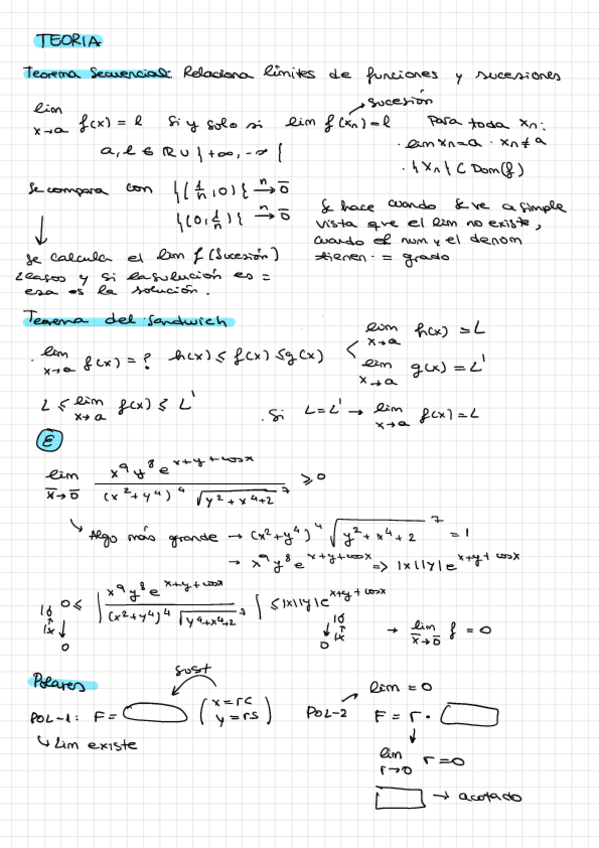 TEORIA
Teorema Secuencial: Relaciona límites de funciones y sucesiones
lim x→a f(x) = l si y solo si lim f(xn) = l → sucesión para toda xn:
a, l ∈ R ∪ {+∞, -∞} · lim xn = a · xn ≠ a
· {xn} ⊂ Dom(f)
Se compara con {(1/n, 0)} n→ 0̄
{(0, 1/n)} n→ 0̄
Se hace cuando se ve a simple
vista que el lim no existe,
cuando el num y el denom
tienen = grado
↓
Se calcula el lim f (sucesión)
2 casos y si la solución es =
esa es la solución.
Teorema del Sandwich
· lim x→a f(x) = ? h(x) ≤ f(x) ≤ g(x) < lim x→a h(x) = L
lim x→a g(x) = L'
L ≤ lim x→a f(x) ≤ L' · Si L = L' → lim x→a f(x) = L
E
lim x̄→0̄ x⁹y⁸e^(x+y+cosx) / (x²+y⁴)⁴ √(y²+x⁴+2)⁷ ≥ 0
↳ Algo más grande → (x²+y⁴)⁴ √(y²+x⁴+2)⁷ = 1
→ x⁹y⁸e^(x+y+cosx) => |x||y|e^(x+y+cosx)
0 ≤ | x⁹y⁸e^(x+y+cosx) / (x²+y⁴)⁴ √(y⁴+x⁴+2)⁷ | ≤ |x||y|e^(x+y+cosx)
0 0 → lim x̄→0̄ f = 0
Polares
sust
POL-1: F = (x=rc
y=rs)
↳ Lim existe
POL-2 lim = 0
F = r ·
↓
lim r→0 r = 0
→ acotado